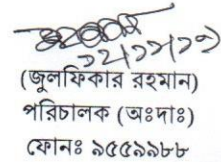 (জুলফিকার রহমান)
পরিচালক (অঃদাঃ)
ফোনঃ ৯৫৫৯৯৮৮